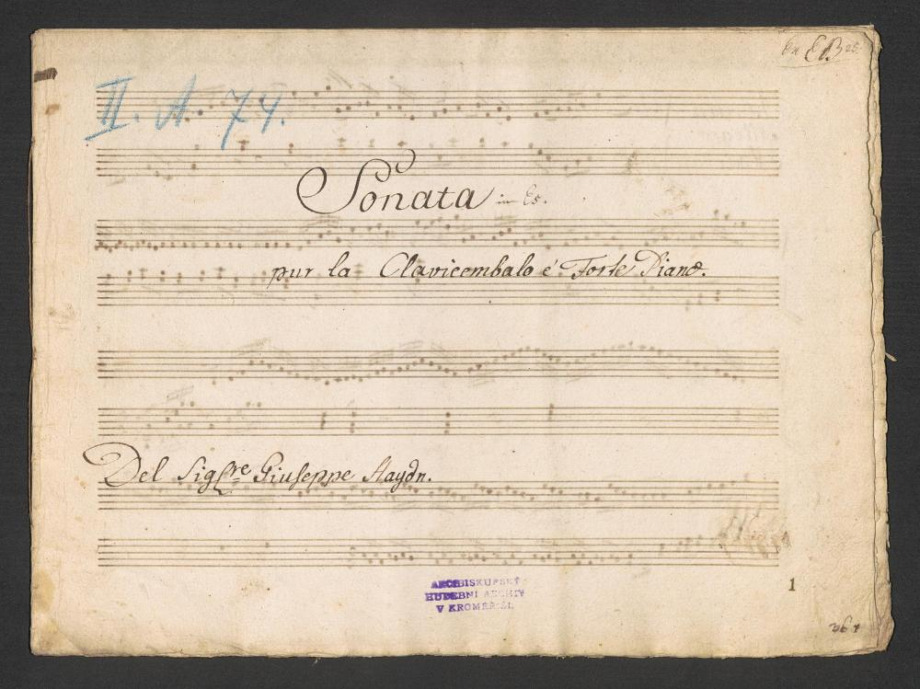 EB
II. A. 74.
Sonata in Es.
pur la Clavicembalo é Forte Piano.
Del Sigre Giuseppe Haydn.
ARCIBISKUPSKÝ
HUDEBNI ARCHIV
V KROMĚŘÍŽI.
1